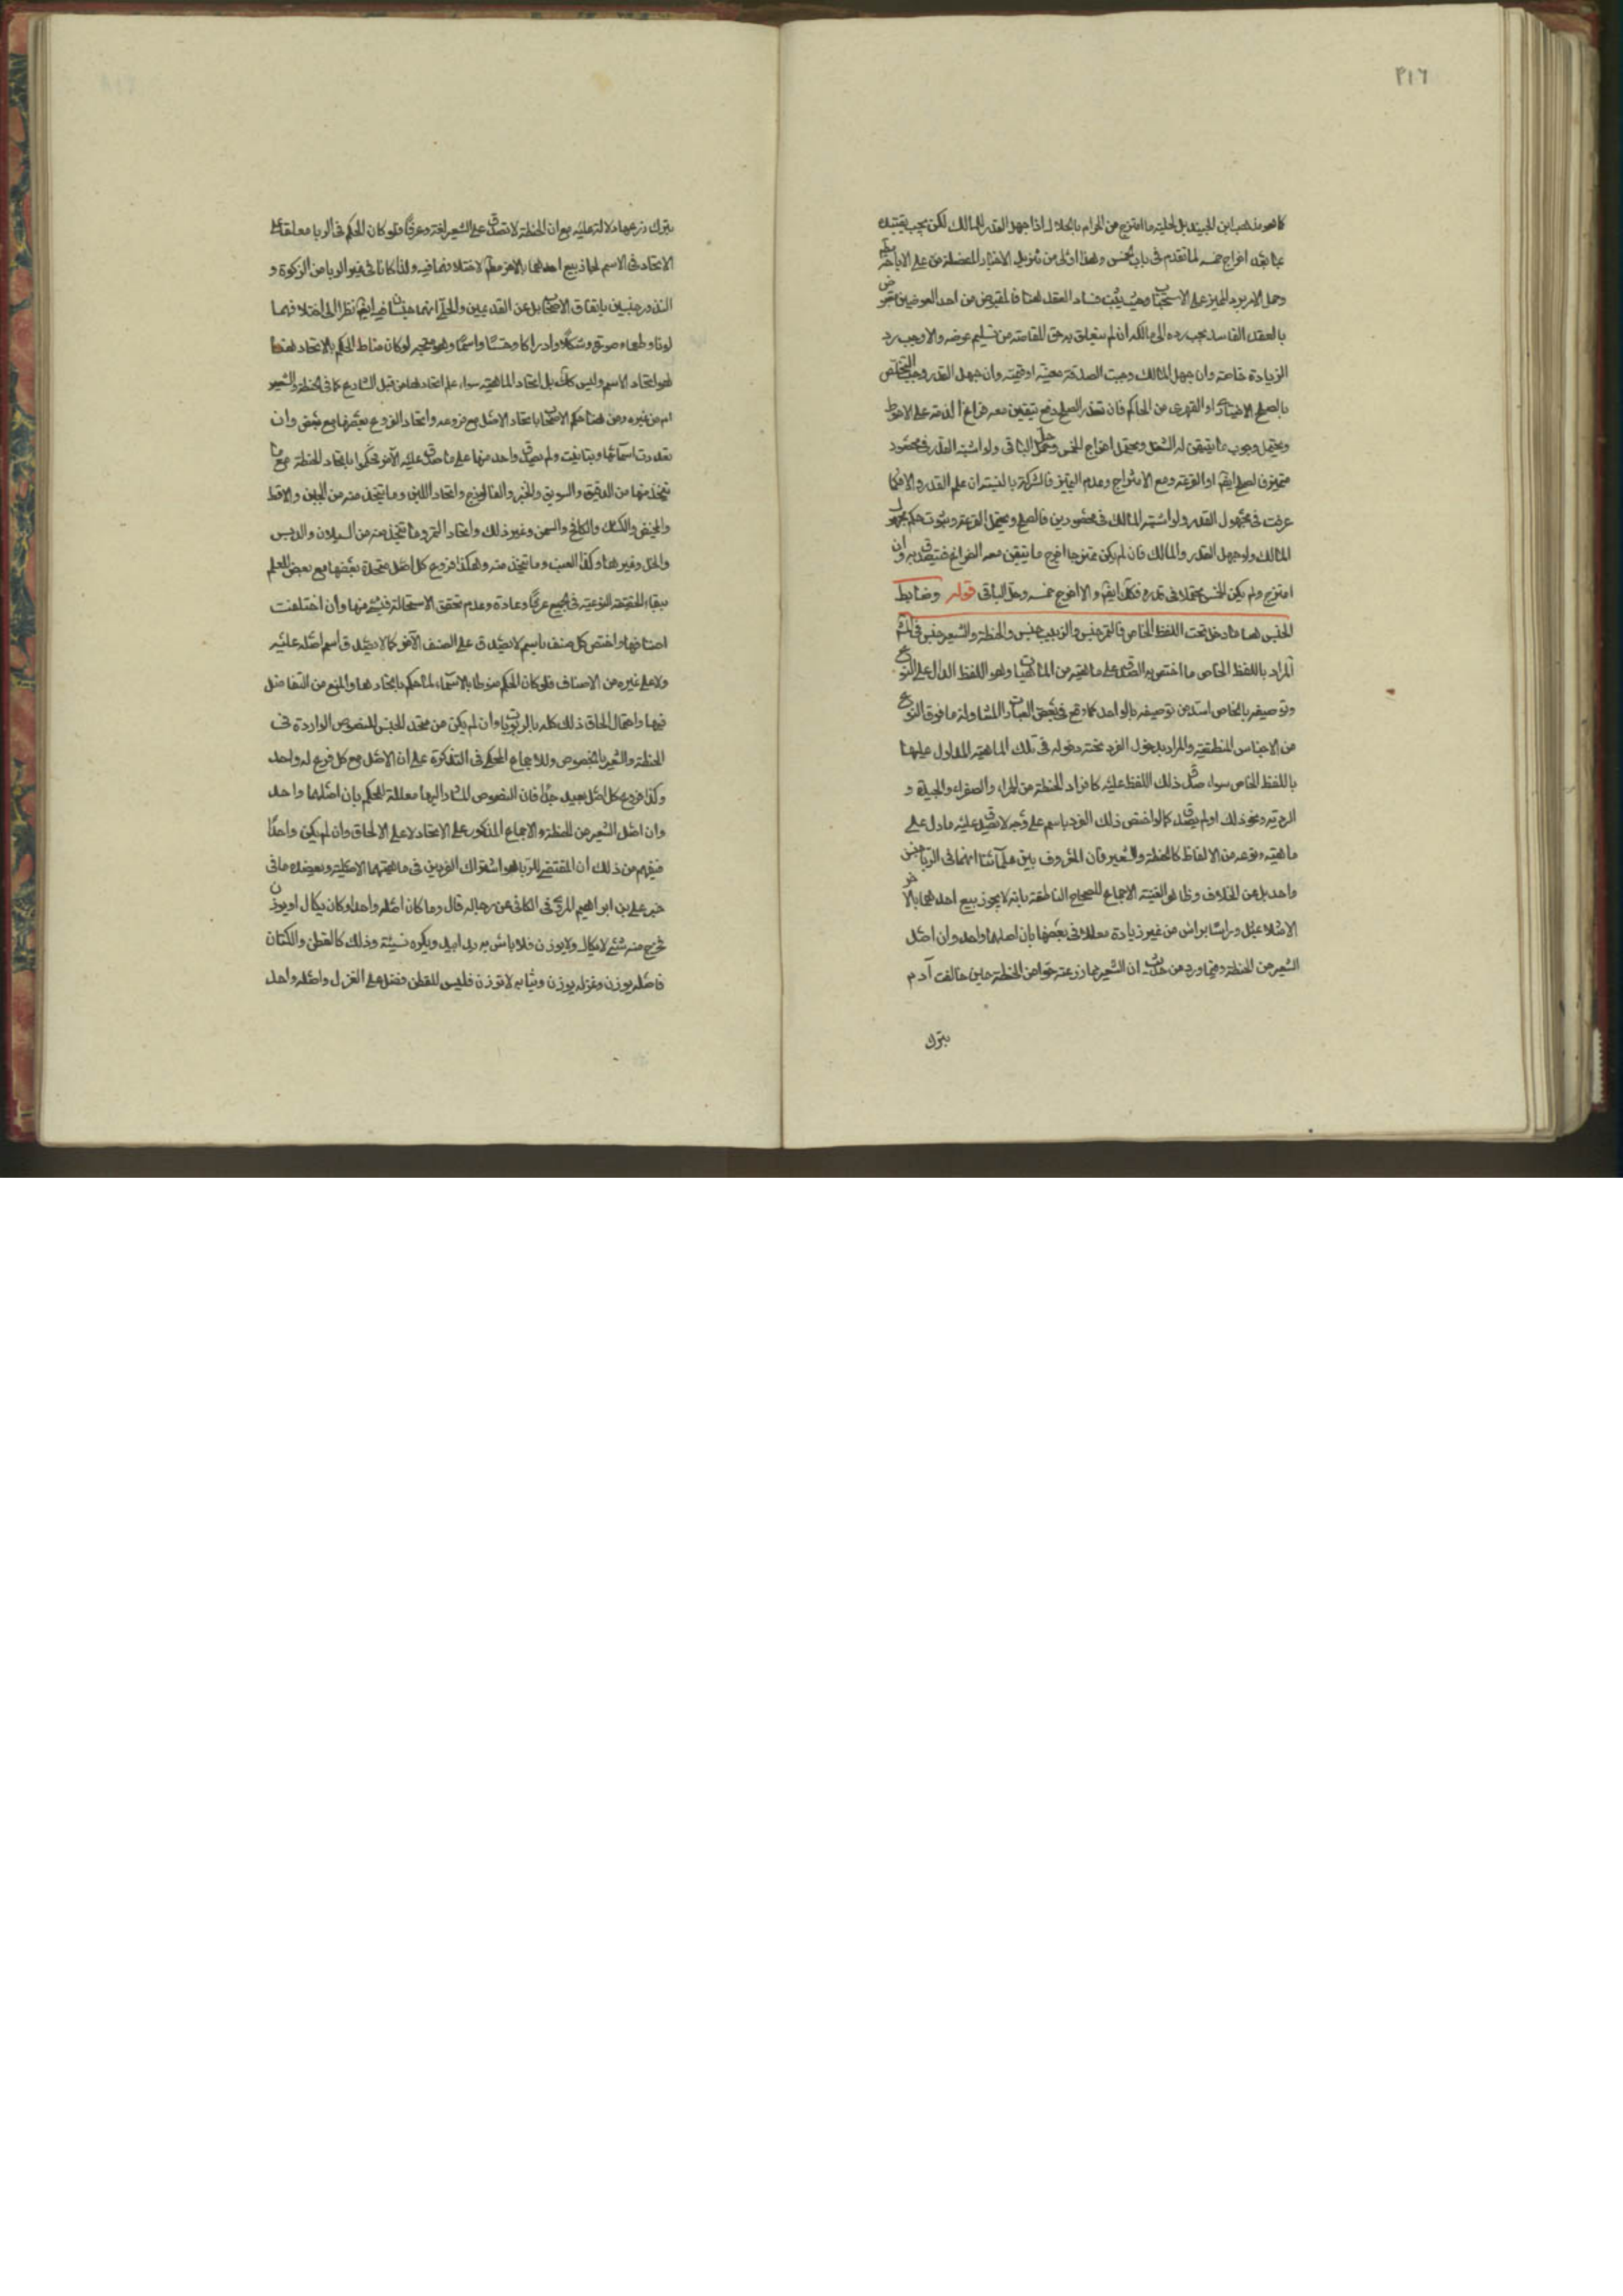 ٣١٦
كما هو مذهب ابن الجنيد بل لحلية ما امتزج من الحرام بالحلال اذا جهل القدر المالك لكن يجب تقييده
بما بعد اخراج خمسه لما تقدم في باب الخمس وهذا اولى من تنزيل الاخبار المفصلة على الاباحة
وحمل الامر برد المميز على الاستحباب وحيث يثبت فساد العقد هنا فالمقبوض من احد العوضين مقبوض
بالعقد الفاسد يجب رده الى مالكه ان لم يتعلق به حق المقاصة من تسليم عوضه والا وجب رد
الزيادة خاصة وان جهل المالك وجبت الصدقة بعينه او قيمته وان جهل القدر وجب التخلص
بالصلح الاختياري او القهري من الحاكم فان تعذر الصلح دفع ما تيقن معه فراغ الذمة على الاحوط
ويحتمل وجوب ما تيقن له الشغل ويحتمل اخراج الخمس وحل الباقي ولو اشتبه القدر في محصور
متميز فالصلح ايضا او القرعة ومع الامتزاج وعدم التمايز فالشركة بالنسبة ان علم القدر والا فكما
عرفت في مجهول القدر ولو اشتبه المالك في محصورين فالصلح ويحتمل القرعة وثبوت حكم مجهول
المالك ولو جهل القدر والمالك فان لم يكن ممتزجا اخرج ما تيقن معه الفراغ فتصدق به وان
امتزج ولم يكن الخمس محتملا في قدره فكك ايضا والا اخرج خمسه وحل الباقي قوله وضابط
الجنس هنا ما دخل تحت اللفظ الخاص فالتمر جنس والزبيب جنس والحنطة والشعير جنس في المشهور
المراد باللفظ الخاص ما اختص به الصدق على ماهية من الماهيات وهو اللفظ الدال على النوع
وتوصيفه بالخاص اسد من توصيفه بالواحد كما وقع في بعض العبارات المتناولة ما فوق النوع
من الاجناس المنطقية والمراد بدخول الفرد تحته دخوله في تلك الماهية المدلول عليها
باللفظ الخاص سواء صدق ذلك اللفظ عليه كافراد الحنطة من الحمراء والصفراء والجيدة و
الردية ونحو ذلك او لم يصدق كما لو اختص ذلك الفرد باسم على وجه لا يصدق عليه ما دل على
ماهيته ونوعه من الالفاظ كالحنطة والشعير فان المعروف بين علمائنا انهما في الربا جنس
واحد بل عن الخلاف وظاهر الغنية الاجماع للصحاح الناطقة بانه لا يجوز بيع احدهما بالاخر
الا مثلا بمثل وراسا براس من غير زيادة معللا في بعضها بان اصلهما واحد وان اصل
الشعير من الحنطة وفيما ورد من حديث ان الشعير مما زرعته حوا من الحنطة حين خالفت آدم
بترك
بترك زرعها دلالة عليه مع ان الحنطة لا تصدق على الشعير لغة وعرفا فلو كان الحكم في الربا معلقا على
الاتحاد في الاسم لجاز بيع احدهما بالاخر مع الاختلاف فيه ولذا كانا في غير الربا من الزكوة و
النذور جنسين باتفاق الاصحاب بل عن القديمين والحلي انهما جنسان فيه ايضا نظرا الى اختلافهما
لونا وطعما وصوتا وشكلا وادراكا وحسا واسما وهو متجه لو كان مناط الحكم بالاتحاد هنا
هو اتحاد الاسم وليس كك بل اتحاد الماهية سواء علم اتحادها من قبل الشارع كما في الحنطة والشعير
ام من غيره ومن هنا حكم الاصحاب باتحاد الاصل مع فروعه واتحاد الفروع بعضها مع بعض وان
تعددت اسمائها وتباينت ولم يصدق واحد منها على ما صدق عليه الآخر فحكموا باتحاد الحنطة مع ما
يتخذ منها من الدقيق والسويق والخبز والفالوذج واتحاد اللبن وما يتخذ منه من الجبن والاقط
والمخيض والكشك والكامخ والسمن وغير ذلك واتحاد التمر وما يتخذ منه من السيلان والدبس
والخل وغيرها وكذا العنب وما يتخذ منه وهكذا فروع كل اصل متحدة بعضها مع بعض للعلم
ببقاء الحقيقة النوعية في الجميع عرفا وعادة وعدم تحقق الاستحالة في شئ منها وان اختلفت
اصنافها واختص كل صنف باسم لا يصدق على الصنف الآخر كما لا يصدق اسم اصله عليه
ولا على غيره من الاصناف فلو كان الحكم منوطا بالاسماء لما حكم باتحادها والمنع من التفاضل
فيها واحتمال الحاق ذلك كله بالربويات وان لم يكن من متحد الجنس للنصوص الواردة في
الحنطة والشعير بالخصوص وللاجماع المحكي في التذكرة على ان الاصل مع كل فرع له واحد
وكذا فروع كل اصل بعيد جدا فان النصوص المشار اليها معللة الحكم بان اصلهما واحد
وان اصل الشعير من الحنطة والاجماع المذكور على الاتحاد لا على الالحاق وان لم يكن واحدا
فيفهم من ذلك ان المقتضي للربا هو اشتراك الفردين في ماهيتهما الاصلية ويعضده ما في
خبر علي بن ابراهيم المروي في الكافي عن رجاله قال وما كان اصله واحدا وكان يكال او يوزن
فخرج منه شئ لا يكال ولا يوزن فلا باس به يدا بيد ويكره نسيئة وذلك كالقطن والكتان
فاصله يوزن وغزله يوزن وثيابه لا توزن فليس للقطن فضل على الغزل واصله واحد